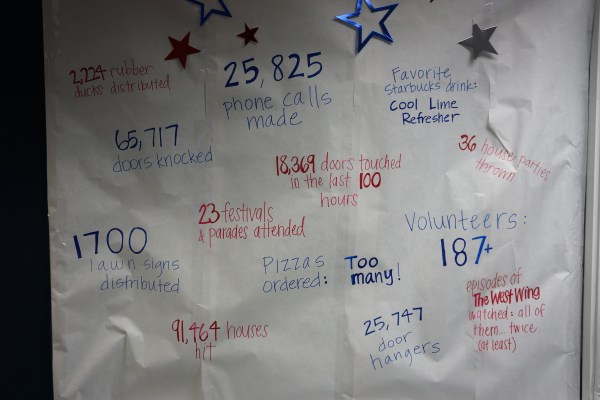 2,224 rubber
ducks distributed
25,825
phone calls
made
Favorite
Starbucks drink:
Cool Lime
Refresher
65,717
doors knocked
18,369 doors touched
in the last 100
hours
36 house parties
thrown
23 festivals
& parades attended
Volunteers:
187+
1700
lawn signs
distributed
Pizzas
ordered:
Too
many!
episodes of
The West Wing
watched: all of
them... twice
(at least)
91,464 houses
hit
25,747
door
hangers